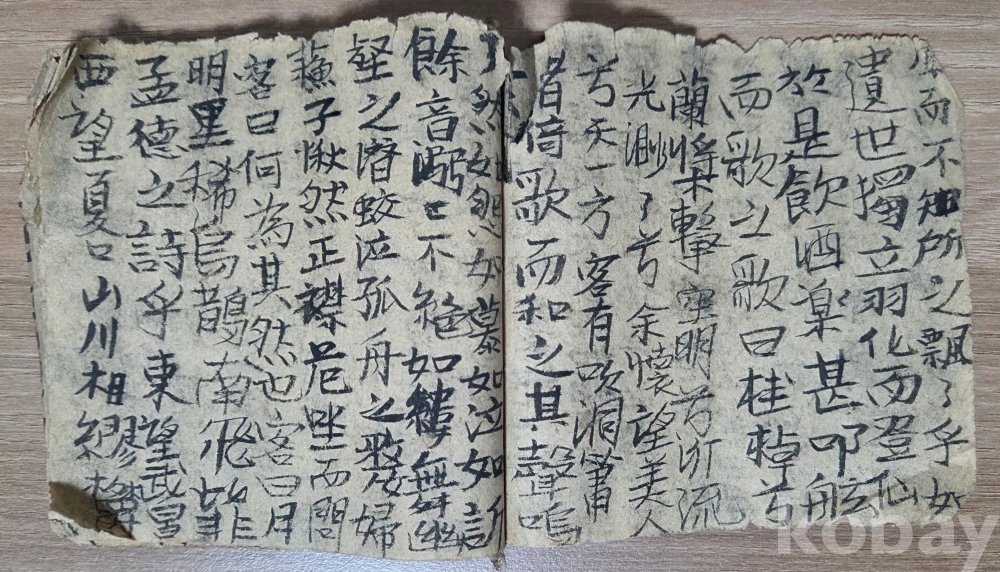 而不知所之飄了乎如
遺世獨立羽化而登仙
於是飮酒樂甚叩舷
而歌之歌曰桂棹兮
蘭槳擊空明兮泝流
光渺了兮余懷望美人
兮天一方客有吹洞簫
者倚歌而和之其聲嗚
了然如怨如慕如泣如訴
餘音溺〻不絶如縷舞幽
壑之潛蛟泣孤舟之嫠婦
蘇子愀然正襟危坐而問
客曰何為其然也客曰月
明星稀烏鵲南飛此非
孟德之詩乎東望武昌
西望夏口山川相繆
kobay